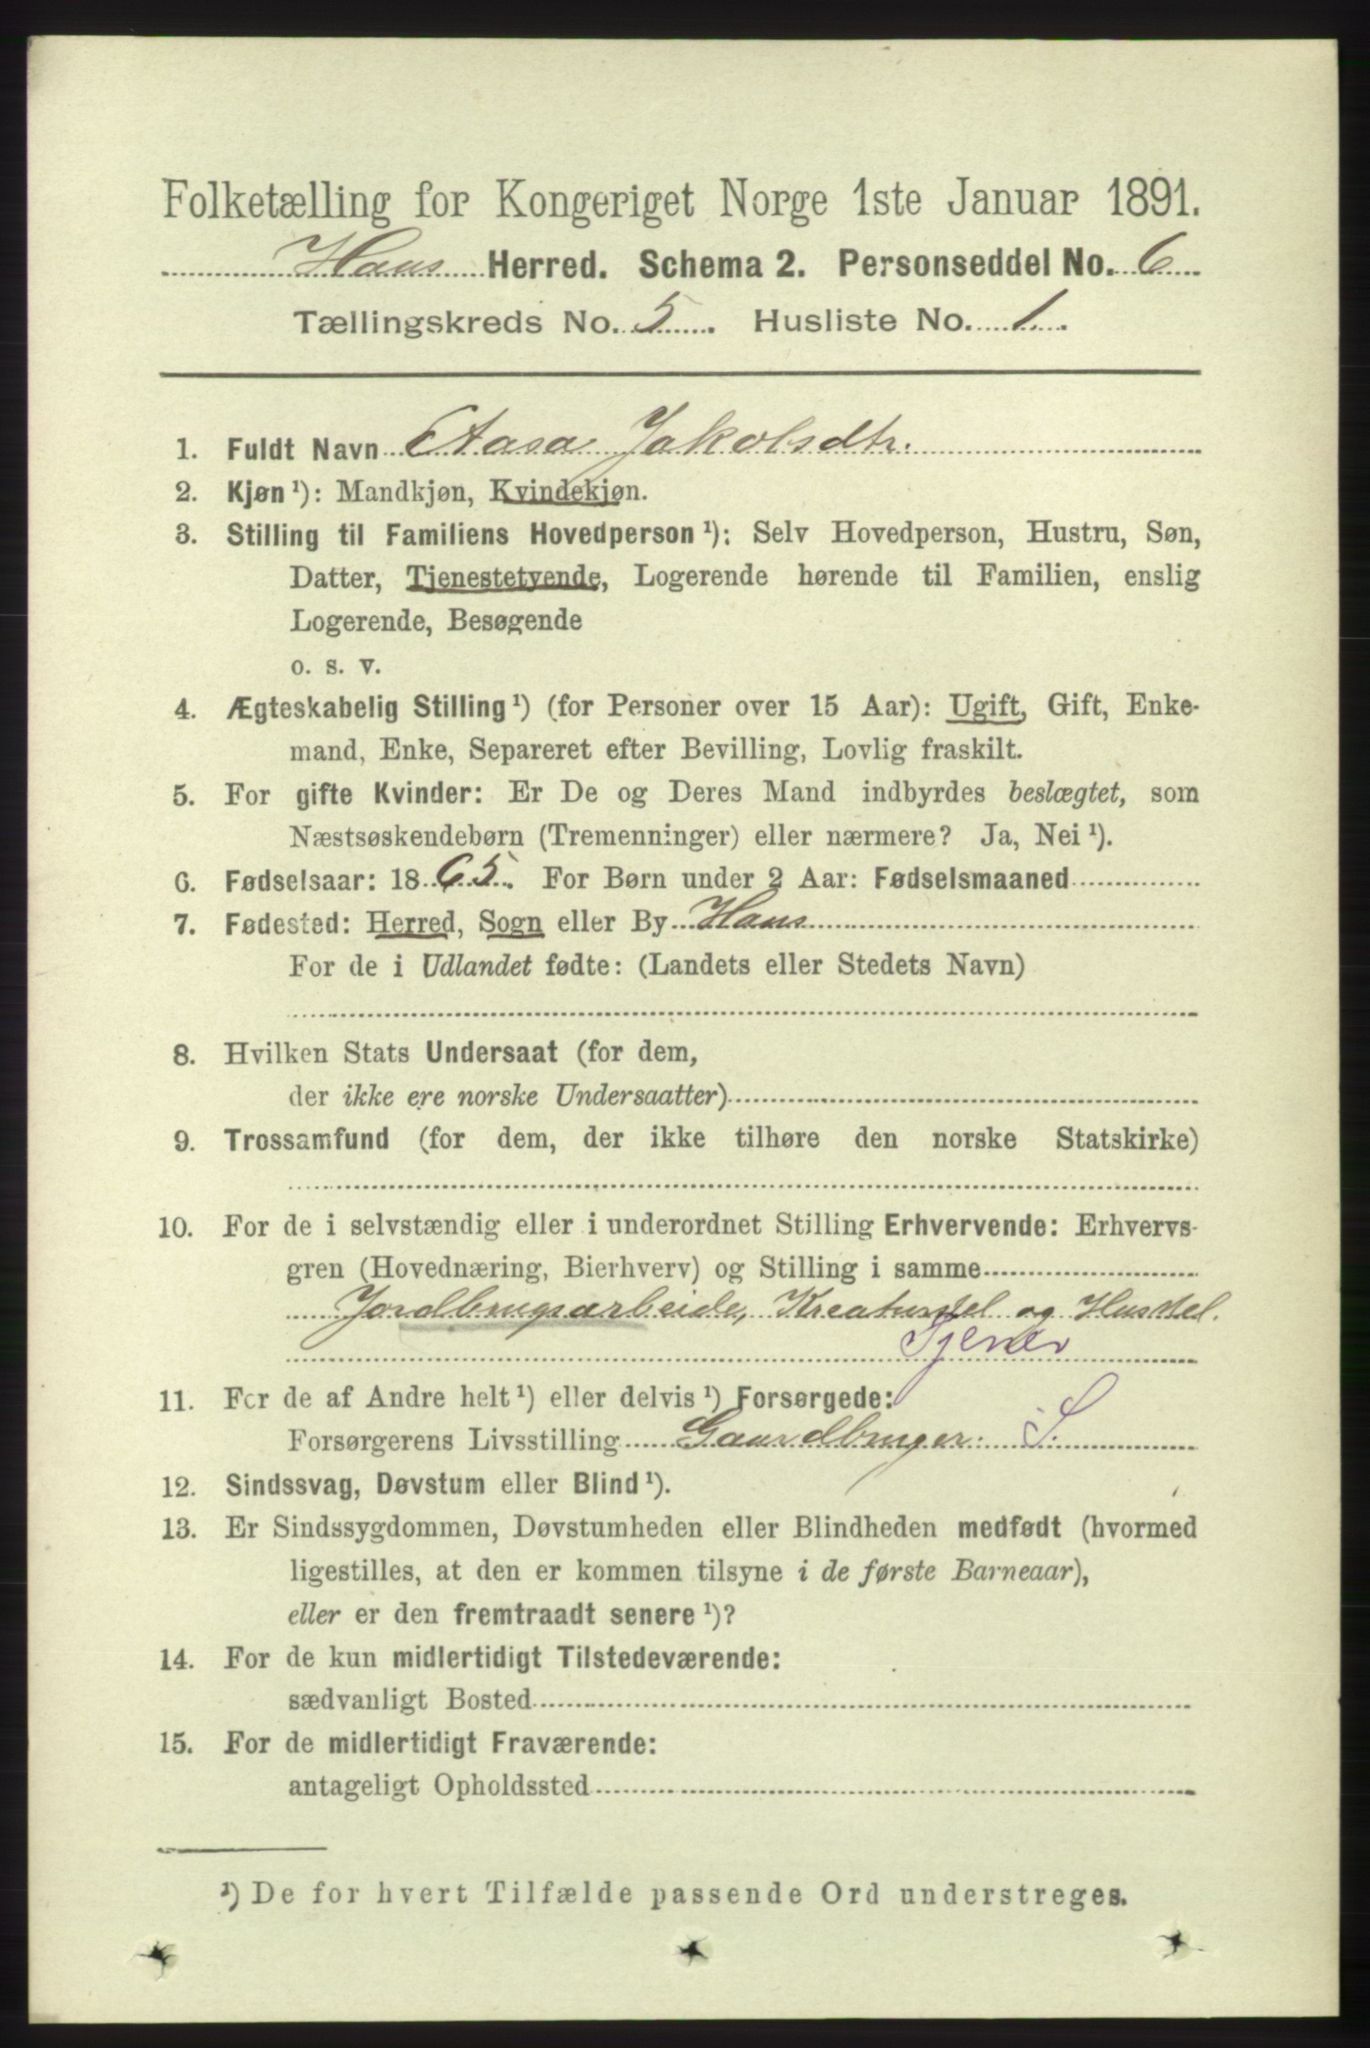 Folketælling for Kongeriget Norge 1ste Januar 1891.
Haus Herred. Schema 2. Personseddel No. 6
Tællingskreds No. 5. Husliste No. 1.
1. Fuldt Navn Aasa Jakobsdtr.
2. Kjøn ¹): Mandkjøn, Kvindekjøn.
3. Stilling til Familiens Hovedperson ¹): Selv Hovedperson, Hustru, Søn,
Datter, Tjenestetyende, Logerende hørende til Familien, enslig
Logerende, Besøgende
o. s. v.
4. Ægteskabelig Stilling ¹) (for Personer over 15 Aar): Ugift, Gift, Enke-
mand, Enke, Separeret efter Bevilling, Lovlig fraskilt.
5. For gifte Kvinder: Er De og Deres Mand indbyrdes beslægtet, som
Næstsøskendebørn (Tremenninger) eller nærmere? Ja, Nei ¹).
6. Fødselsaar: 1865. For Børn under 2 Aar: Fødselsmaaned
7. Fødested: Herred, Sogn eller By Haus
For de i Udlandet fødte: (Landets eller Stedets Navn)
8. Hvilken Stats Undersaat (for dem,
der ikke ere norske Undersaatter)
9. Trossamfund (for dem, der ikke tilhøre den norske Statskirke)
10. For de i selvstændig eller i underordnet Stilling Erhvervende: Erhvervs-
gren (Hovednæring, Bierhverv) og Stilling i samme
Jordbrugsarbeide, Kreaturstel og Husstel.
Tjener
11. For de af Andre helt ¹) eller delvis ¹) Forsørgede:
Forsørgerens Livsstilling Gaardbruger. S.
12. Sindssvag, Døvstum eller Blind ¹).
13. Er Sindssygdommen, Døvstumheden eller Blindheden medfødt (hvormed
ligestilles, at den er kommen tilsyne i de første Barneaar),
eller er den fremtraadt senere ¹)?
14. For de kun midlertidigt Tilstedeværende:
sædvanligt Bosted
15. For de midlertidigt Fraværende:
antageligt Opholdssted
¹) De for hvert Tilfælde passende Ord understreges.